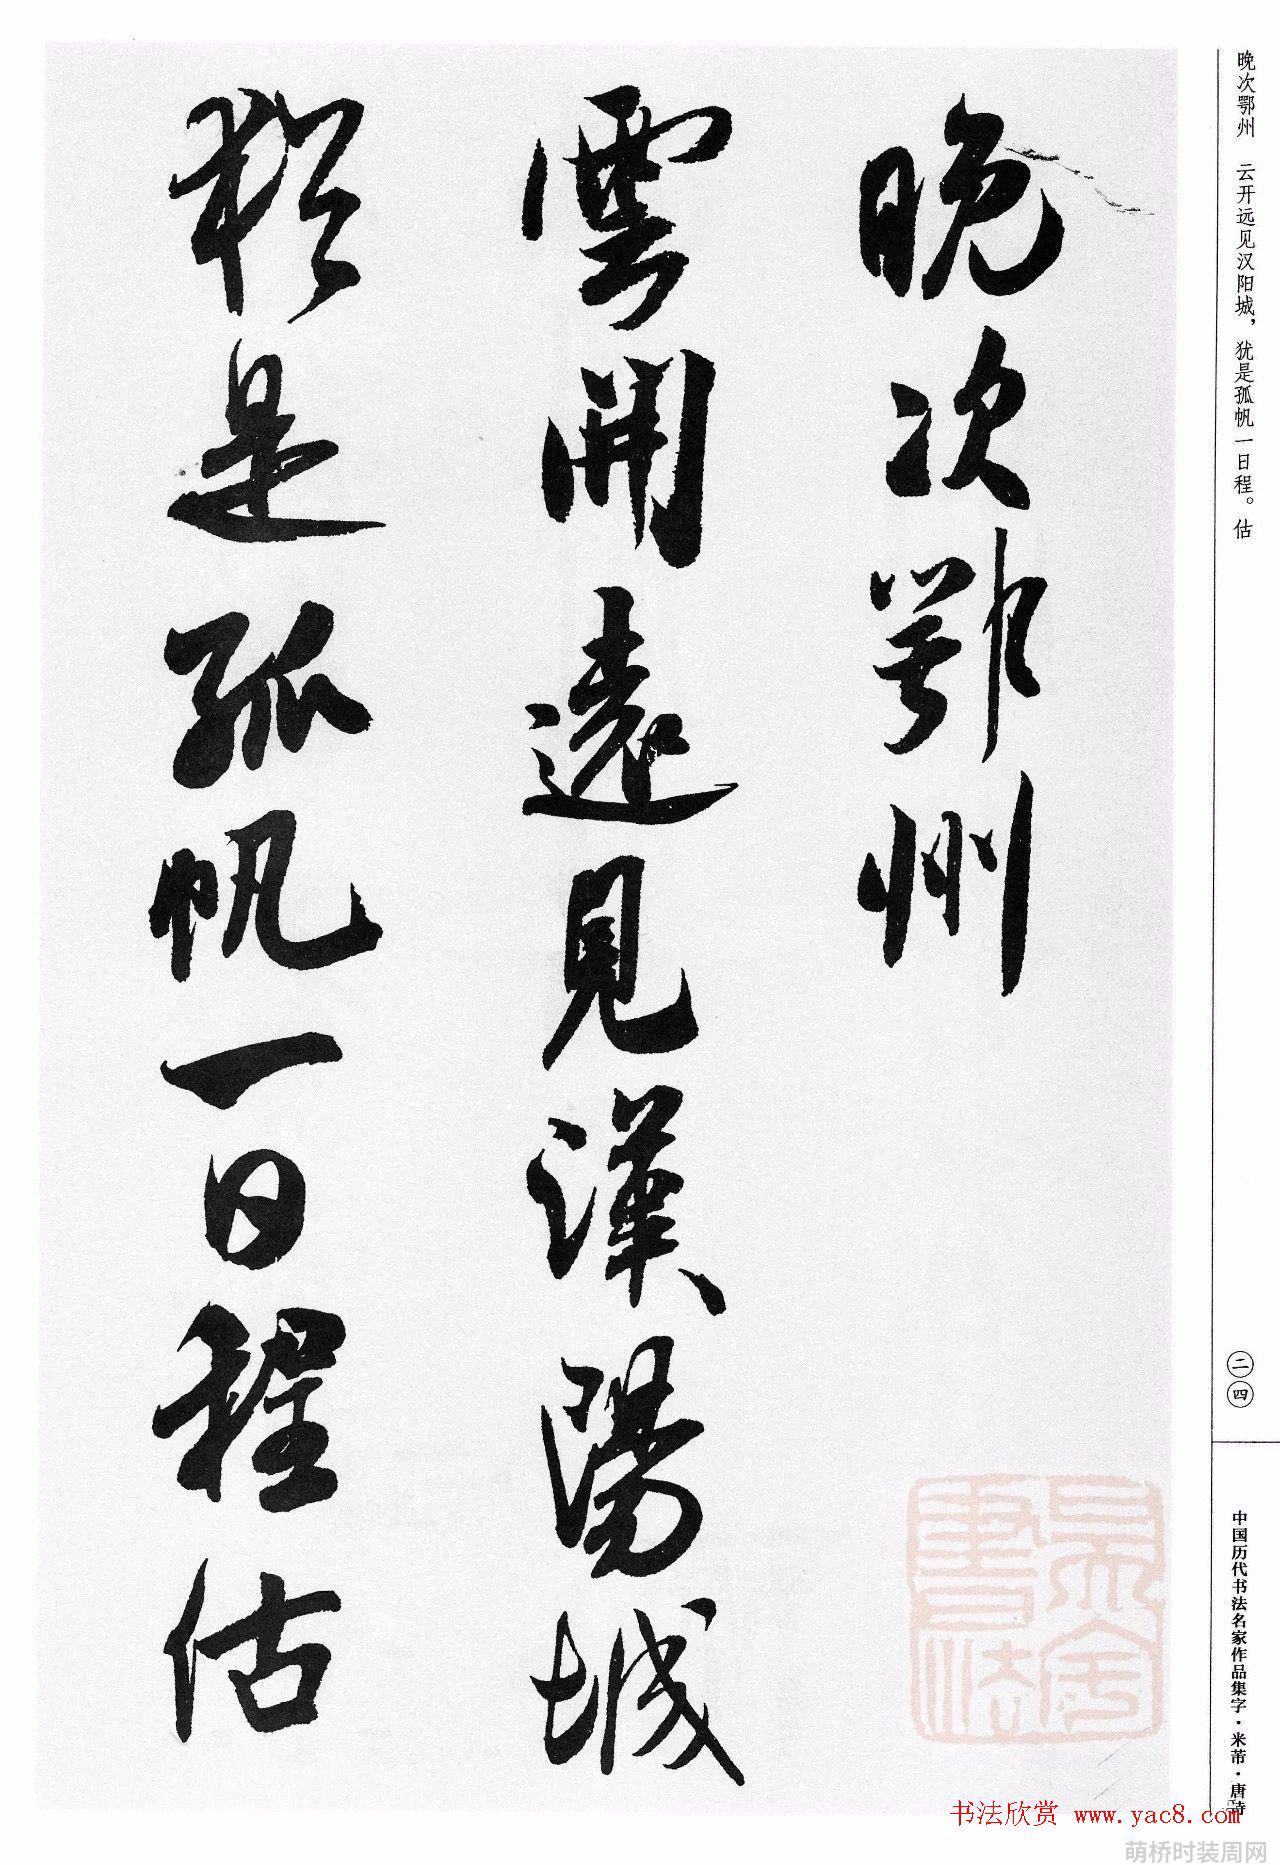 晚次鄂州
雲開遠見漢陽城
猶是孤帆一日程估
晚次鄂州 云开远见汉阳城，犹是孤帆一日程。估
二四
中国历代书法名家作品集字·米芾·唐诗
书法欣赏 www.yac8.com
萌桥时装周网